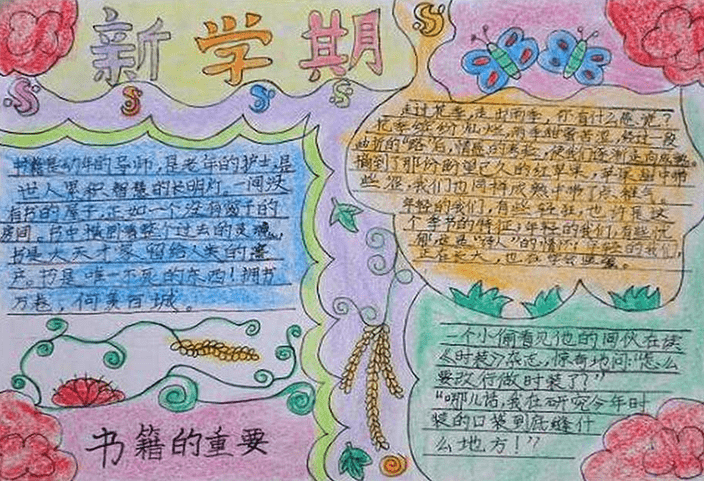 新学期
书籍是幼年的导师,是老年的护士,是
世人累积智慧的长明灯。一间没
有书的屋子,正如一个没有窗子的
房间。书中横卧着整个过去的灵魂。
书是大天才家留给人类的遗
产。书是唯一不死的东西!拥书
万卷,何百城。
书籍的重要
走过花季,走出雨季,你有什么感觉?
花季缤纷灿烂,雨季甜蜜苦涩。经过一段
曲折的“路”后,情感的变迁,使我们逐渐走向成熟。
摘到了那份盼望已久的红苹果,苹果甜中带
些涩,我们也同样成熟中带了点稚气。
年轻的我们,有些轻狂,也许是这
个季节的特征,年轻的我们,有些忧
郁,这是“诗人”的情怀;年轻的我们,
正在长大,也在学会
一个小偷看见他的同伙在读
《时装》杂志,惊奇地问:“怎么
要改行做时装了?”
“哪儿话,我在研究今年时
装的口袋到底缝什
么地方!”